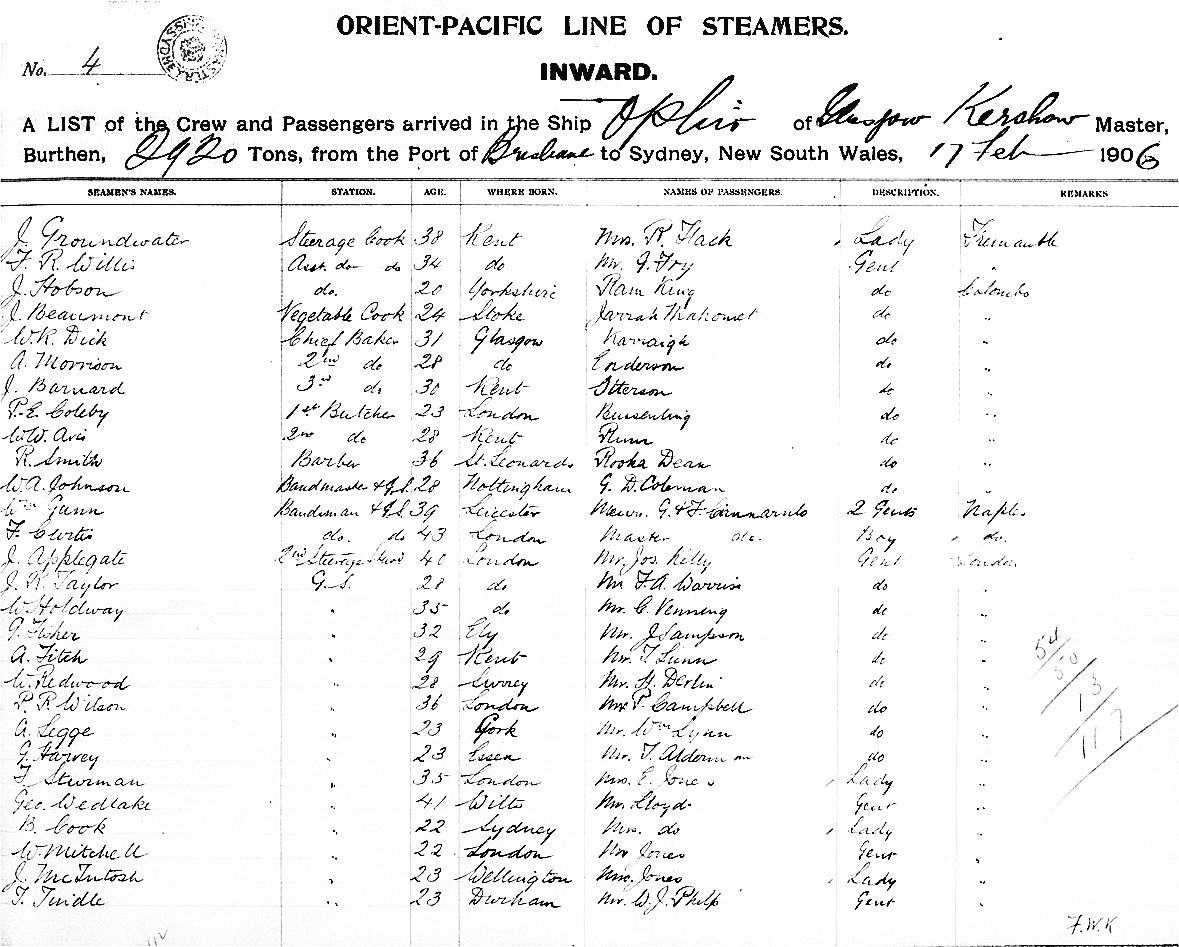 ORIENT-PACIFIC LINE OF STEAMERS.
No. 4
INWARD.
A LIST of the Crew and Passengers arrived in the Ship Ophir of Glasgow Kershaw Master,
Burthen, 2920 Tons, from the Port of Brisbane to Sydney, New South Wales, 17 Feb 1906
SEAMEN'S NAMES. STATION. AGE. WHERE BORN. NAMES OF PASSENGERS. DESCRIPTION. REMARKS
J. Groundwater Steerage Cook 38 Kent Mrs. R. Flack Lady Fremantle
F. R. Willis Asst. do do 34 do Mr. G. Fry Gent "
J. Hobson do. 20 Yorkshire Ram King do Colombo
J. Beaumont Vegetable Cook 24 Stoke Jarrah Mahomet do "
W.R. Dick Chief Baker 31 Glasgow Karraigh do "
A. Morrison 2nd do 28 do Enderson do "
J. Barnard 3rd do 30 Kent Itterson do "
P.E. Coleby 1st Butcher 23 London do "
W.W. Avis 2nd do 28 Kent do "
R. Smith Barber 36 St. Leonards Rooka Dean do "
W.A. Johnson Bandmaster & G.S. 28 Nottingham G. D. Coleman do "
Wm Gunn Bandsman & G.S. 39 Leicester Messrs. G. & F. 2 Gents Naples
F. Curtis do. do 43 London Master do. Boy " do.
J. Applegate 2nd Steerage Stwd 40 London Mr. Jos. Kelly Gent London
J. R. Taylor G.S. 28 do Mr F.A. do "
W. Holdway " 35 do Mr. C. Venning do "
G. Fisher " 32 Ely Mr. J. Sampson do "
A. Fitch " 29 Kent Mr. T. Lunn do "
W. Redwood " 28 Surrey Mr. H. do "
P. R. Wilson " 36 London Mr P. Campbell do "
A. Legge " 23 York Mr. Wm Lynn do "
G. Harvey " 23 Essex Mr. T. Alderman do "
F. Sturman " 35 London Mrs. E. Jones Lady "
Geo. Wedlake " 41 Wilts Mr. Lloyd Gent "
B. Cook " 22 Sydney Mrs. do Lady "
W. Mitchell " 22 London Mr Jones Gent "
J. McIntosh " 23 Wellington Mrs. Jones Lady "
T. Tindle " 23 Durham Mr. W. J. Philp Gent "
54
50
13
117
F.W.K
112